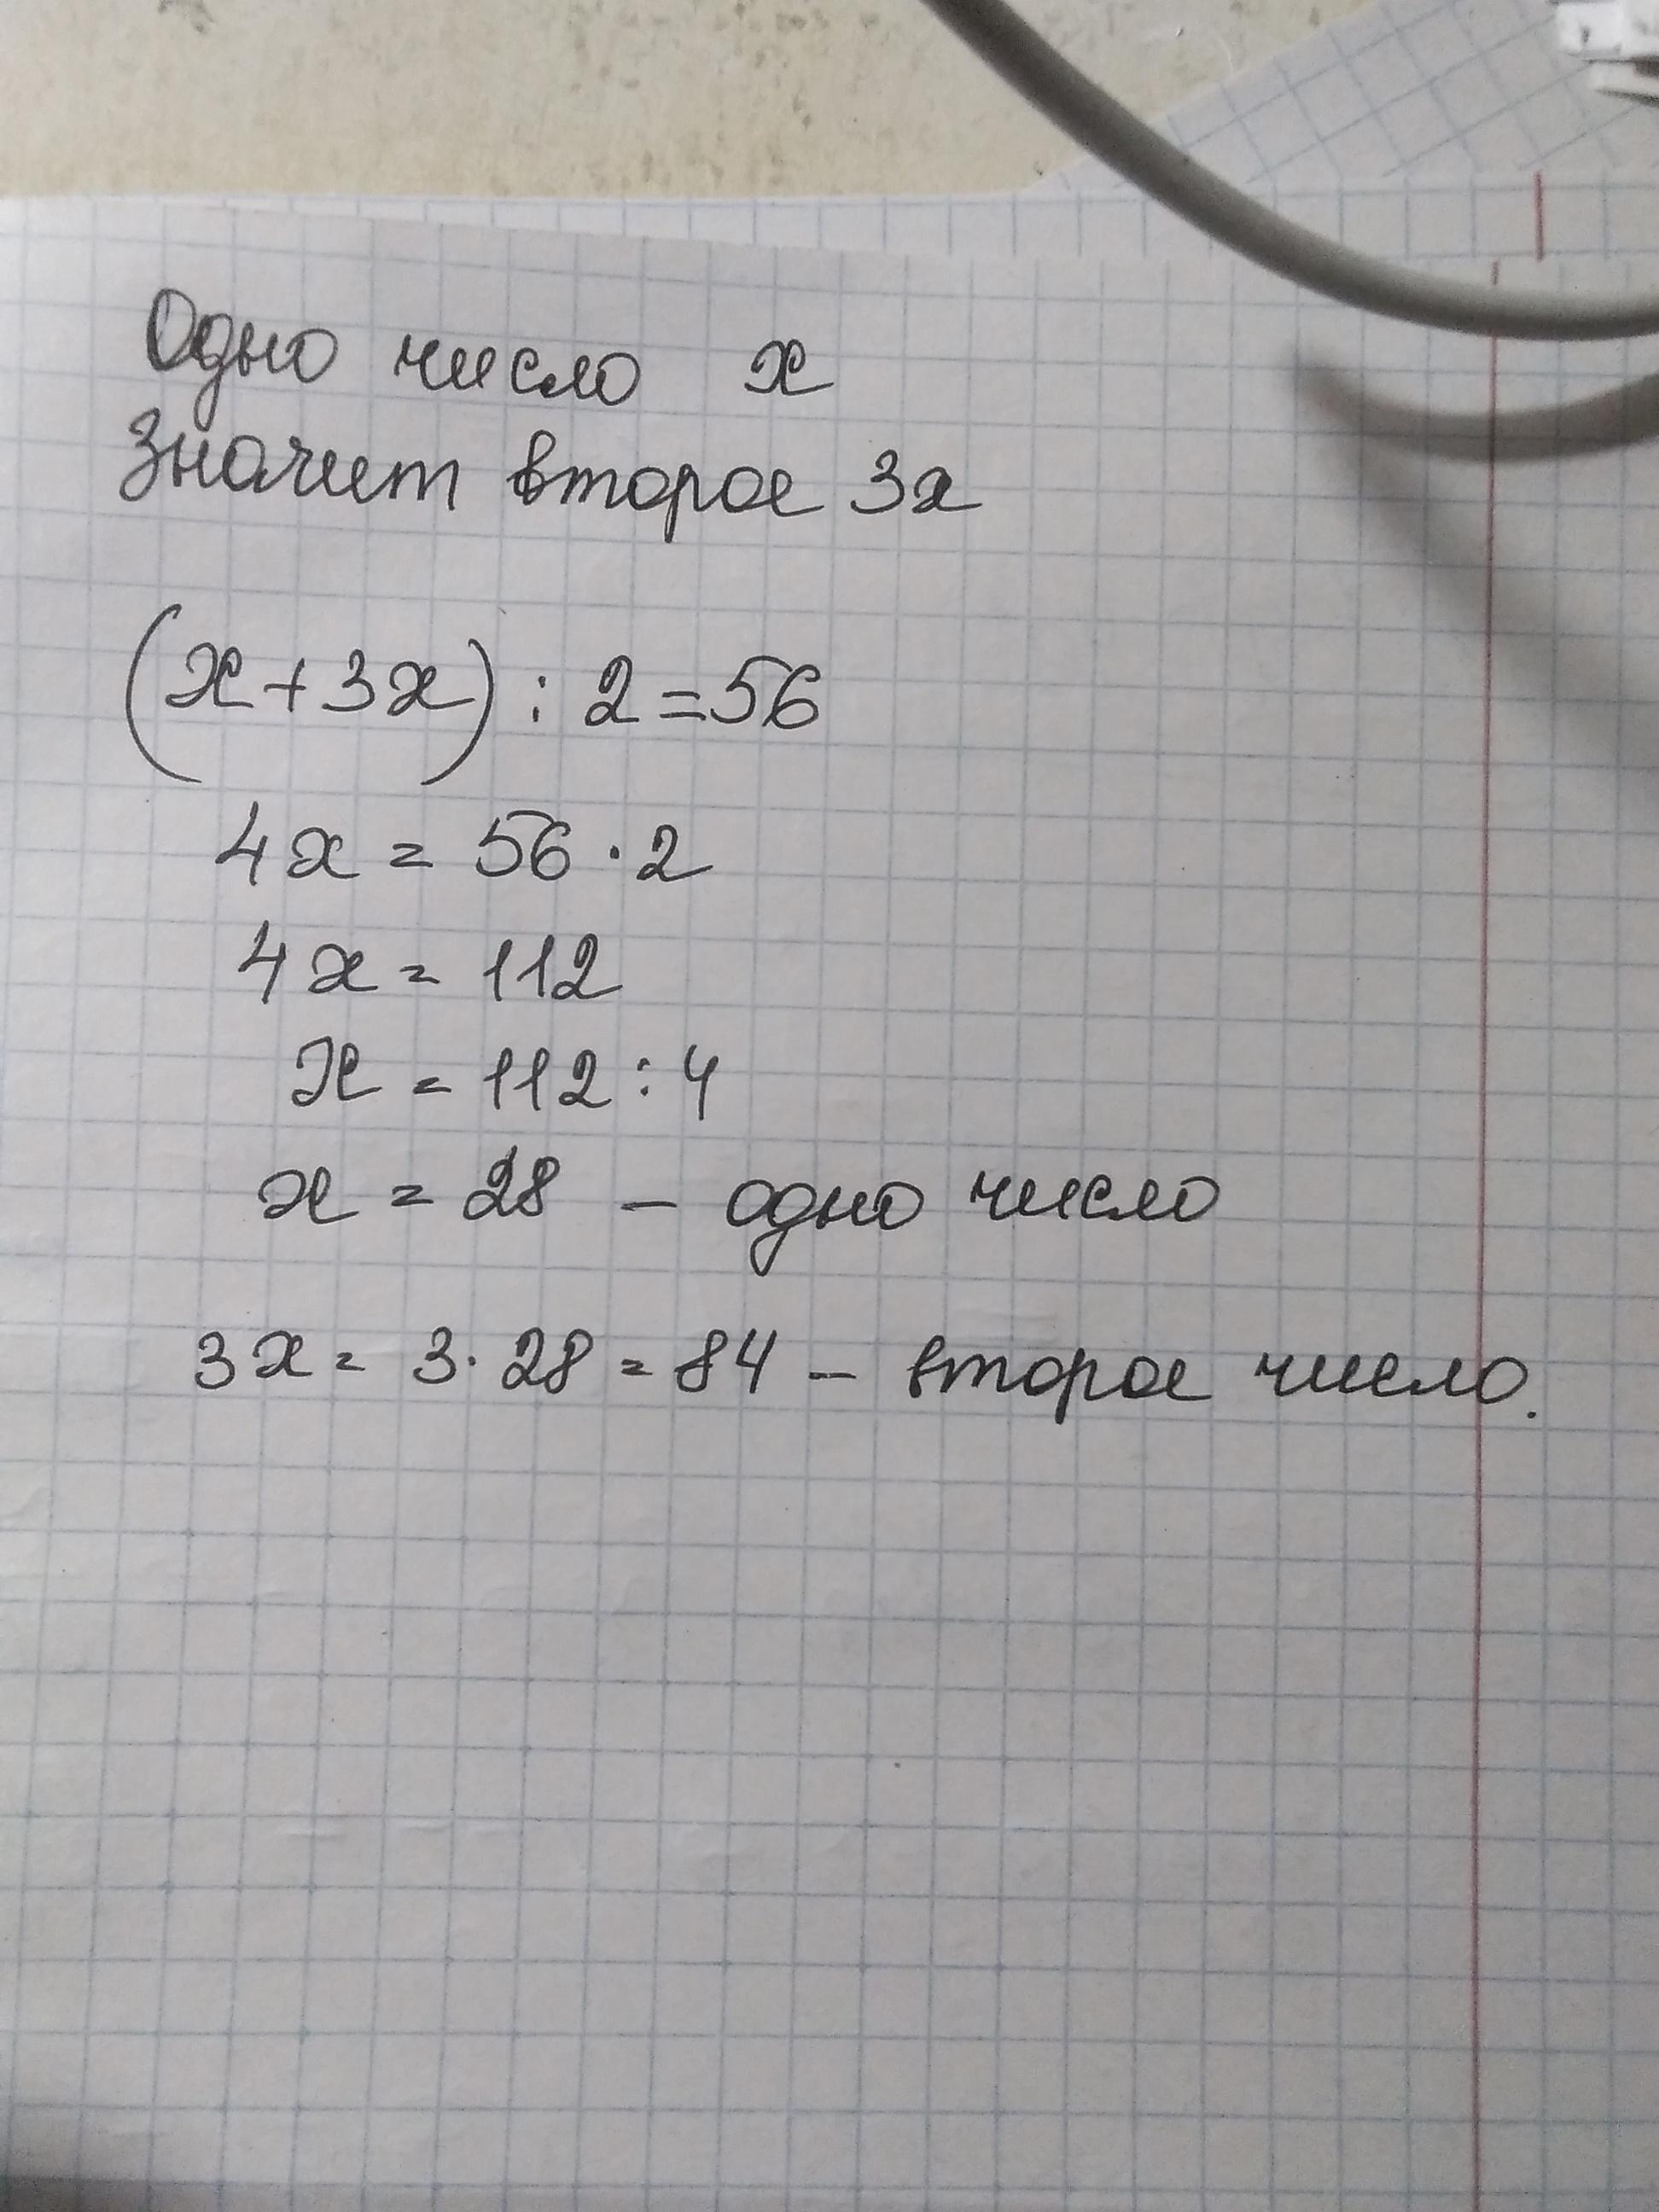 Одно число x
Значит второе 3x
(x+3x) : 2 = 56
4x = 56 · 2
4x = 112
x = 112 : 4
x = 28 – одно число
3x = 3 · 28 = 84 – второе число.